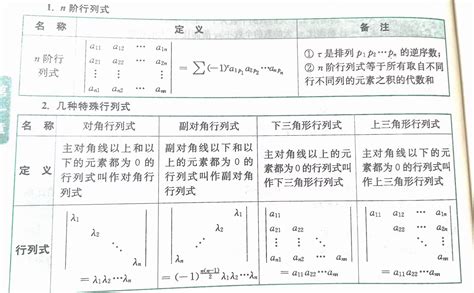 1. n 阶行列式
名 称 定 义 备 注
n 阶行列式
| a₁₁ a₁₂ ⋯ a₁ₙ |
| a₂₁ a₂₂ ⋯ a₂ₙ |
| ⋮ ⋮ ⋮ |
| aₙ₁ aₙ₂ ⋯ aₙₙ |
= ∑(−1)^τ a₁ₚ₁ a₂ₚ₂ ⋯ aₙₚₙ
① τ 是排列 p₁p₂⋯pₙ 的逆序数;
② n 阶行列式等于所有取自不同
行不同列的元素之积的代数和
2. 几种特殊行列式
名 称 对角行列式 副对角行列式 下三角形行列式 上三角形行列式
定 义
主对角线以上和以
下的元素都为 0 的
行列式叫作对角行
列式
副对角线以下和以
上的元素都为 0 的
行列式叫作副对角
行列式
主对角线以上的元
素都为 0 的行列式叫
作下三角形行列式
主对角线以下的元
素都为 0 的行列式叫
作上三角形行列式
行列式
| λ₁ |
| λ₂ |
| ⋱ |
| λₙ |
= λ₁λ₂⋯λₙ
| λ₁ |
| λ₂ |
| ⋰ |
| λₙ |
= (−1)^(n(n−1)/2) λ₁λ₂⋯λₙ
| a₁₁ |
| a₂₁ a₂₂ |
| ⋮ ⋮ ⋱ |
| aₙ₁ aₙ₂ ⋯ aₙₙ |
= a₁₁a₂₂⋯aₙₙ
| a₁₁ a₁₂ ⋯ a₁ₙ |
| a₂₂ ⋯ a₂ₙ |
| ⋱ ⋮ |
| aₙₙ |
= a₁₁a₂₂⋯aₙₙ